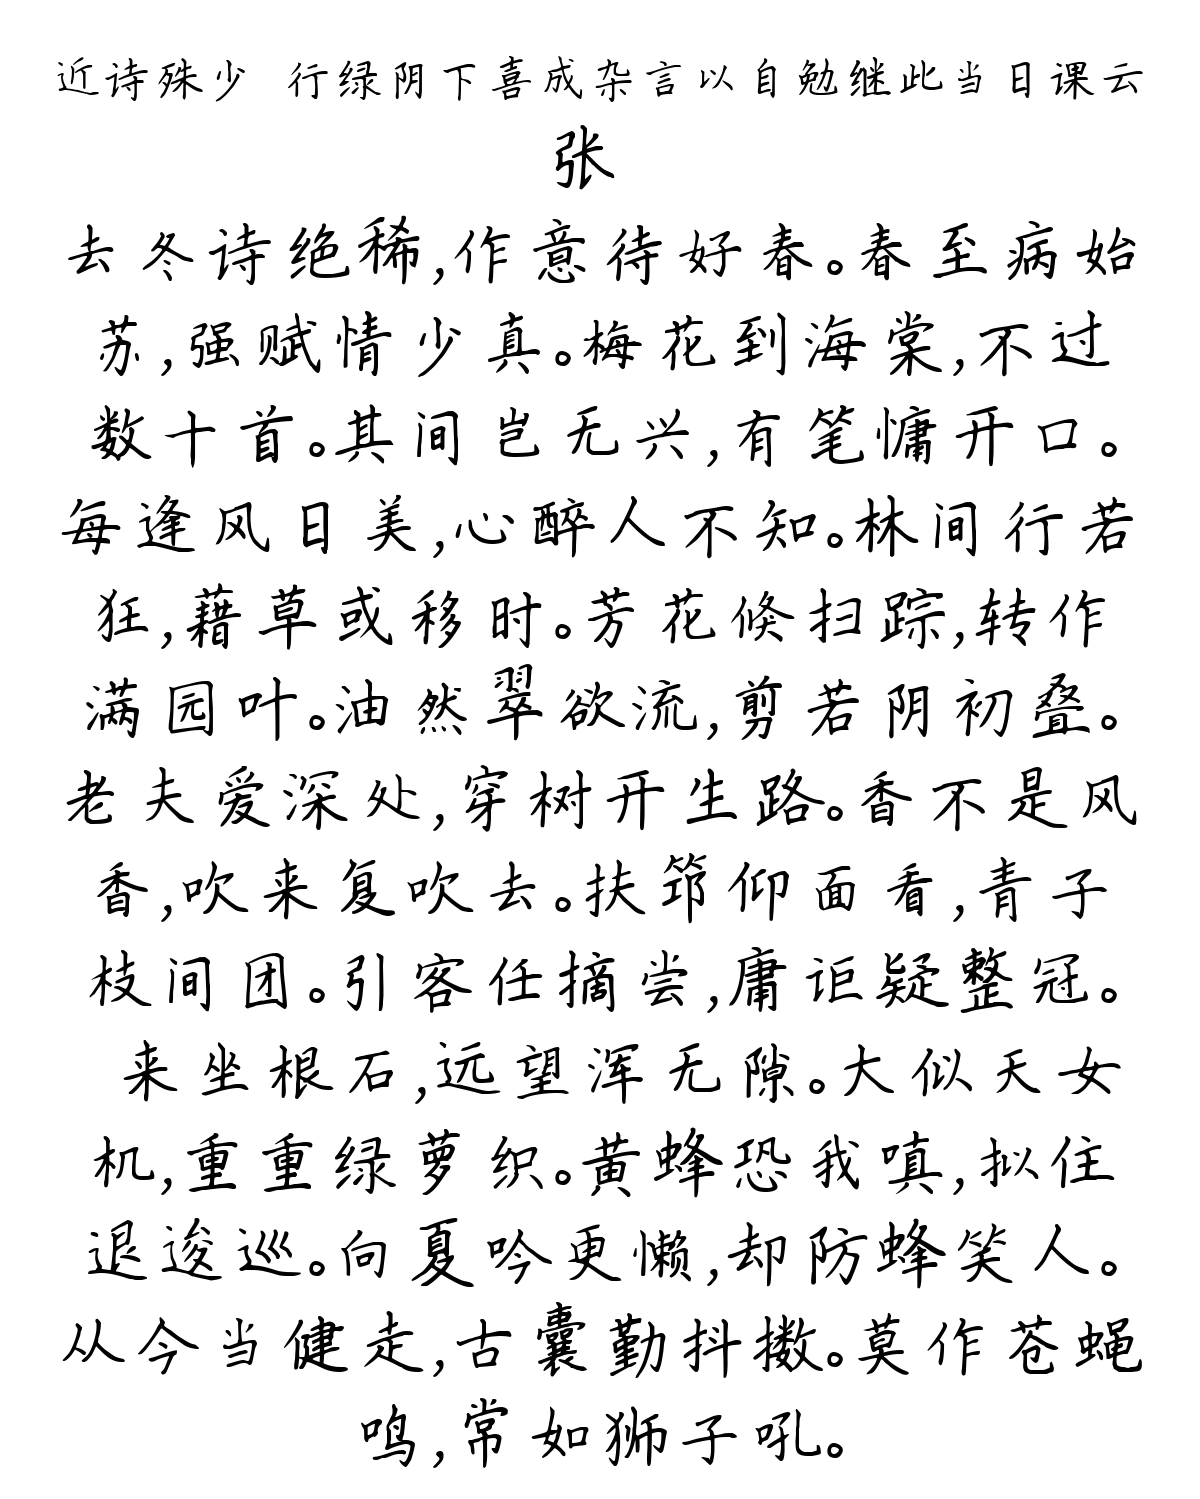 近诗殊少 行绿阴下喜成杂言以自勉继此当日课云
张
去冬诗绝稀,作意待好春。春至病始
苏,强赋情少真。梅花到海棠,不过
数十首。其间岂无兴,有笔慵开口。
每逢风日美,心醉人不知。林间行若
狂,藉草或移时。芳花倏扫踪,转作
满园叶。油然翠欲流,剪若阴初叠。
老夫爱深处,穿树开生路。香不是风
香,吹来复吹去。扶筇仰面看,青子
枝间团。引客任摘尝,庸讵疑整冠。
来坐根石,远望浑无隙。大似天女
机,重重绿萝织。黄蜂恐我嗔,拟住
退逡巡。向夏吟更懒,却防蜂笑人。
从今当健走,古囊勤抖擞。莫作苍蝇
鸣,常如狮子吼。